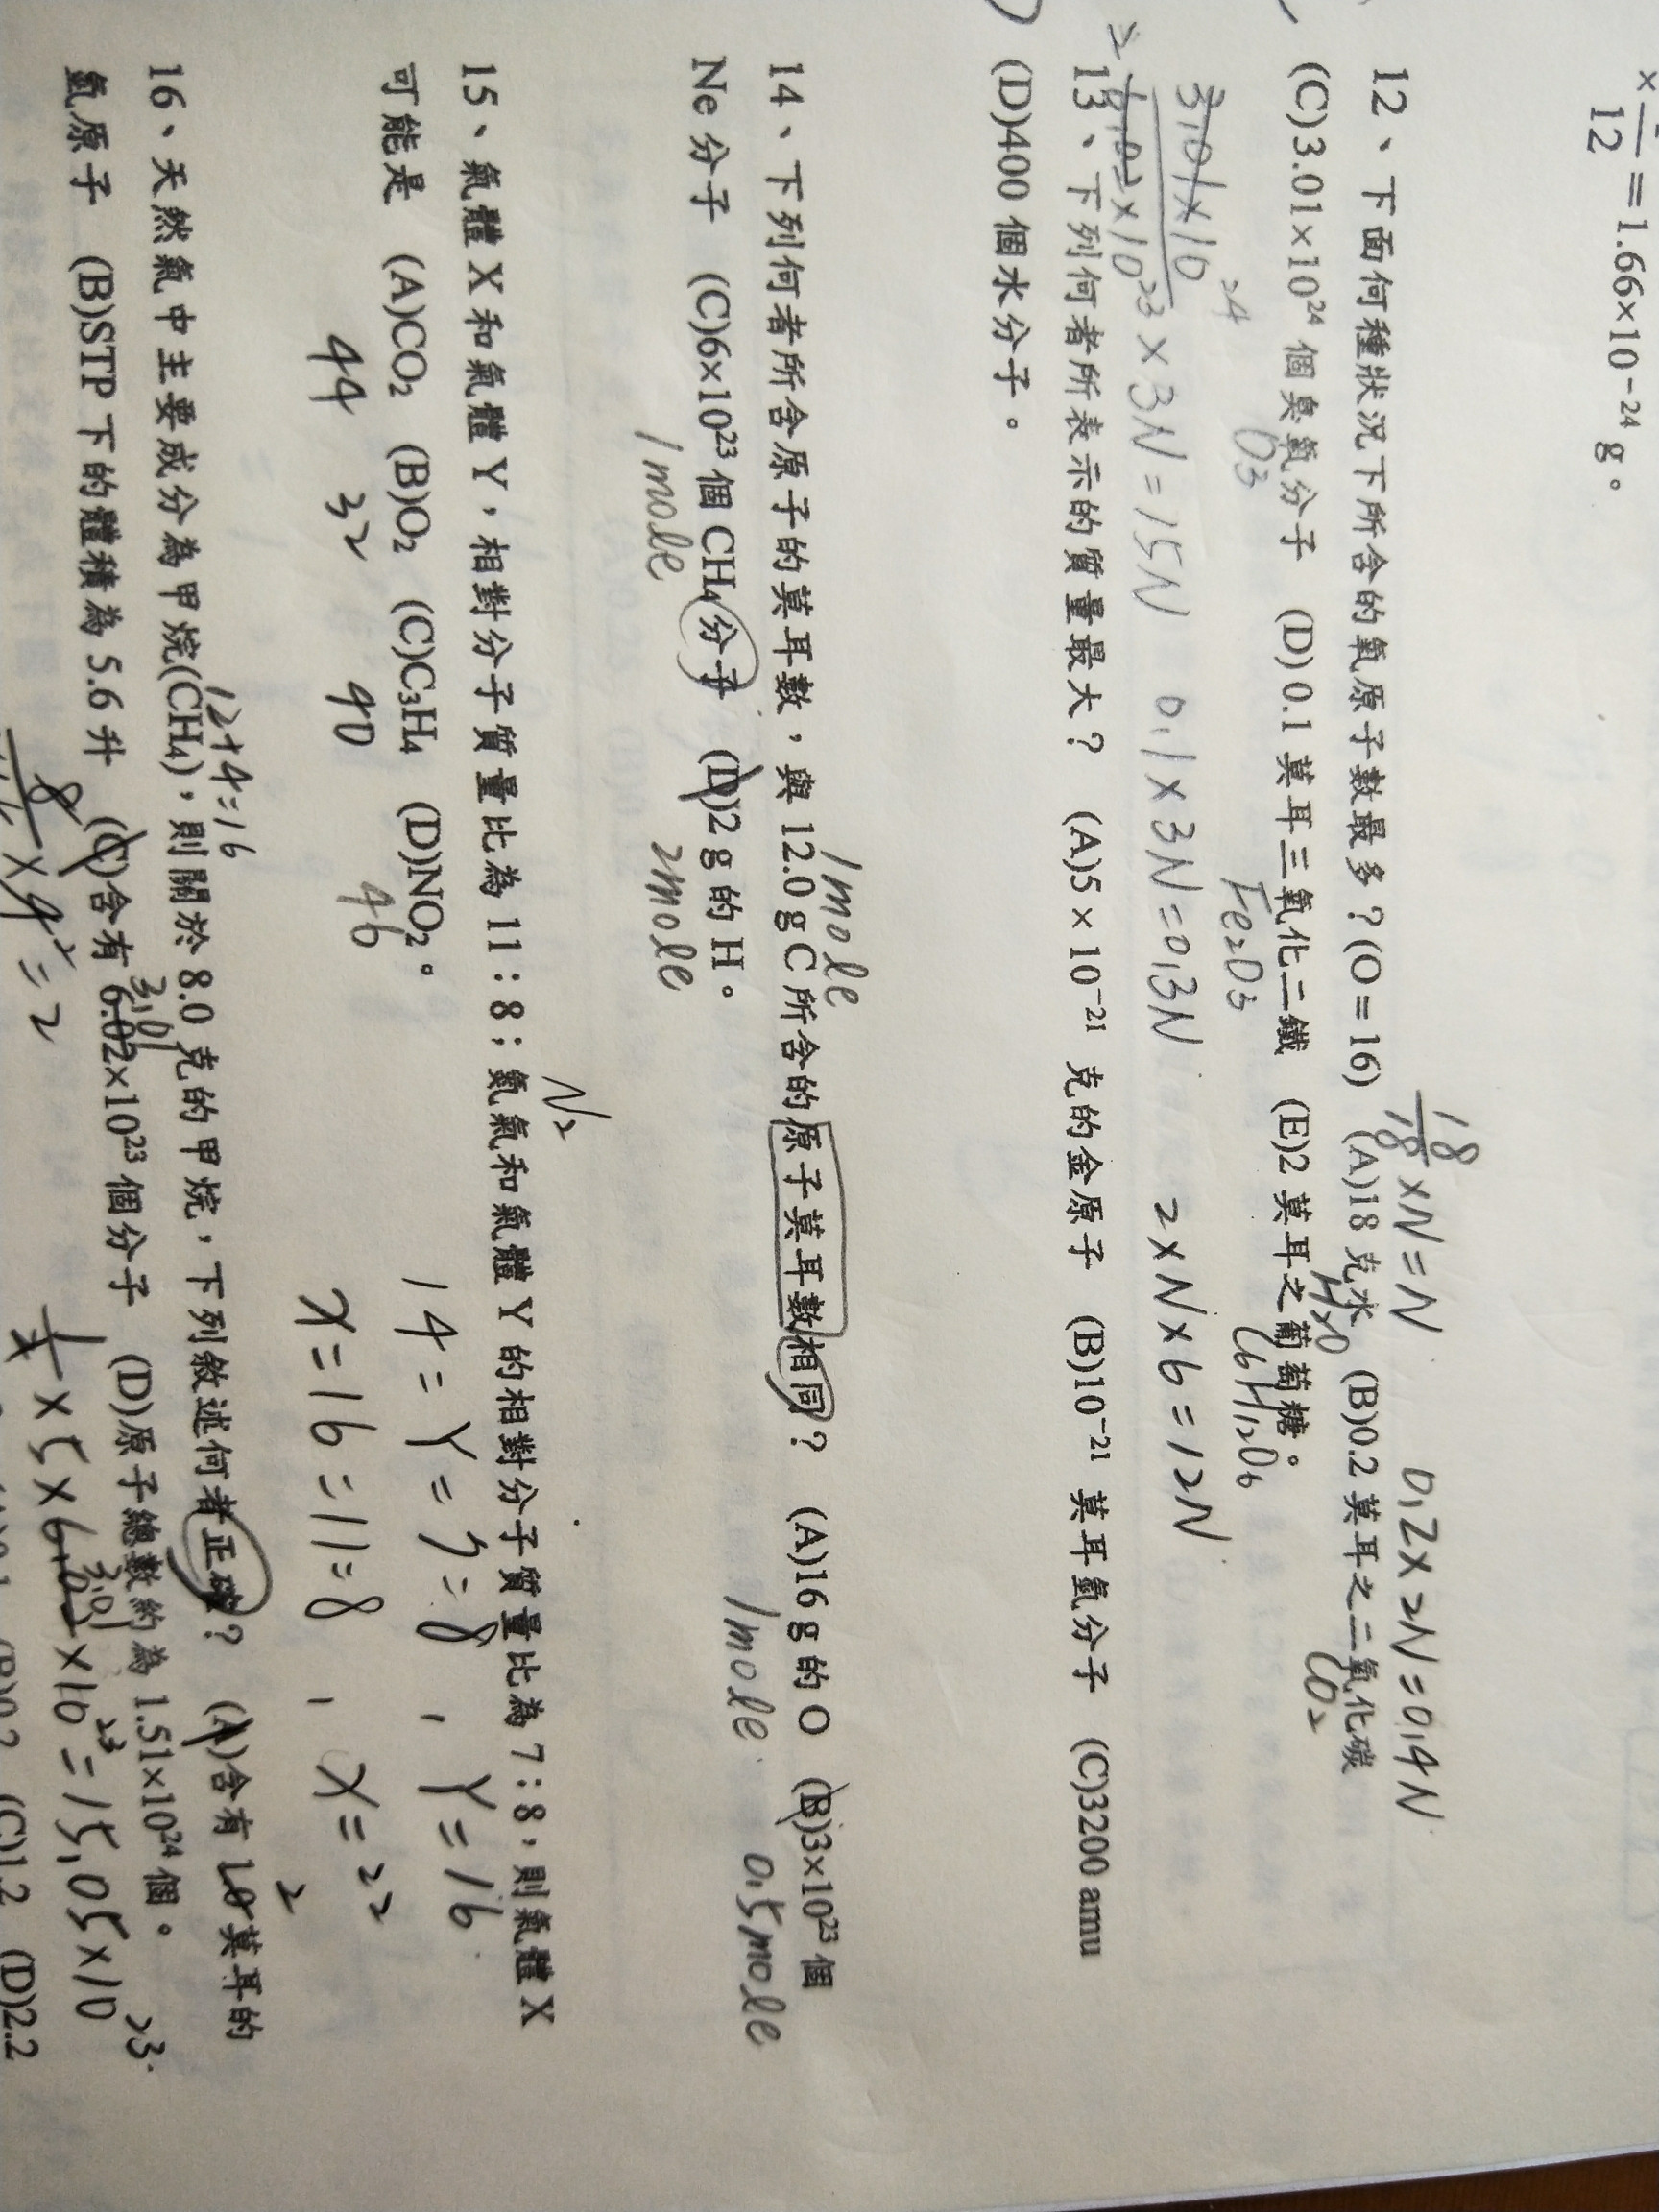 ×―/12 = 1.66×10⁻²⁴ g。
18/18 ×N=N 0.2×2N=0.4N
12、下面何種狀況下所含的氧原子數最多？(O＝16) (A)18 克水 (B)0.2 莫耳之二氧化碳
H₂O CO₂
(C)3.01×10²⁴ 個臭氧分子 (D)0.1 莫耳三氧化二鐵 (E)2 莫耳之葡萄糖。
O₃ Fe₂O₃ C₆H₁₂O₆
3.01×10²⁴/6.02×10²³ ×3N=15N 0.1×3N=0.3N 2×N×6=12N
13、下列何者所表示的質量最大？ (A)5×10⁻²¹ 克的金原子 (B)10⁻²¹ 莫耳氫分子 (C)3200 amu
(D)400 個水分子。
1mole
14、下列何者所含原子的莫耳數，與 12.0 g C 所含的原子莫耳數相同？ (A)16 g 的 O (B)3×10²³ 個
1mole 0.5mole
Ne 分子 (C)6×10²³ 個 CH₄ 分子 (D)2 g 的 H。
1mole 2mole
N₂
15、氣體 X 和氣體 Y，相對分子質量比為 11：8；氮氣和氣體 Y 的相對分子質量比為 7：8，則氣體 X
可能是 (A)CO₂ (B)O₂ (C)C₃H₄ (D)NO₂。
14=Y=7=8 , Y=16
44 32 40 46
X=16=11=8 , X=22
12+4=16
2
16、天然氣中主要成分為甲烷(CH₄)，則關於 8.0 克的甲烷，下列敘述何者正確？ (A)含有 1.0 莫耳的
3.01
氫原子 (B)STP 下的體積為 5.6 升 (C)含有 6.02×10²³ 個分子 (D)原子總數約為 1.51×10²⁴ 個。
×4=2
×5×6.02×10²³=15.05×10²³
3.01
(C)1.2 (D)2.2